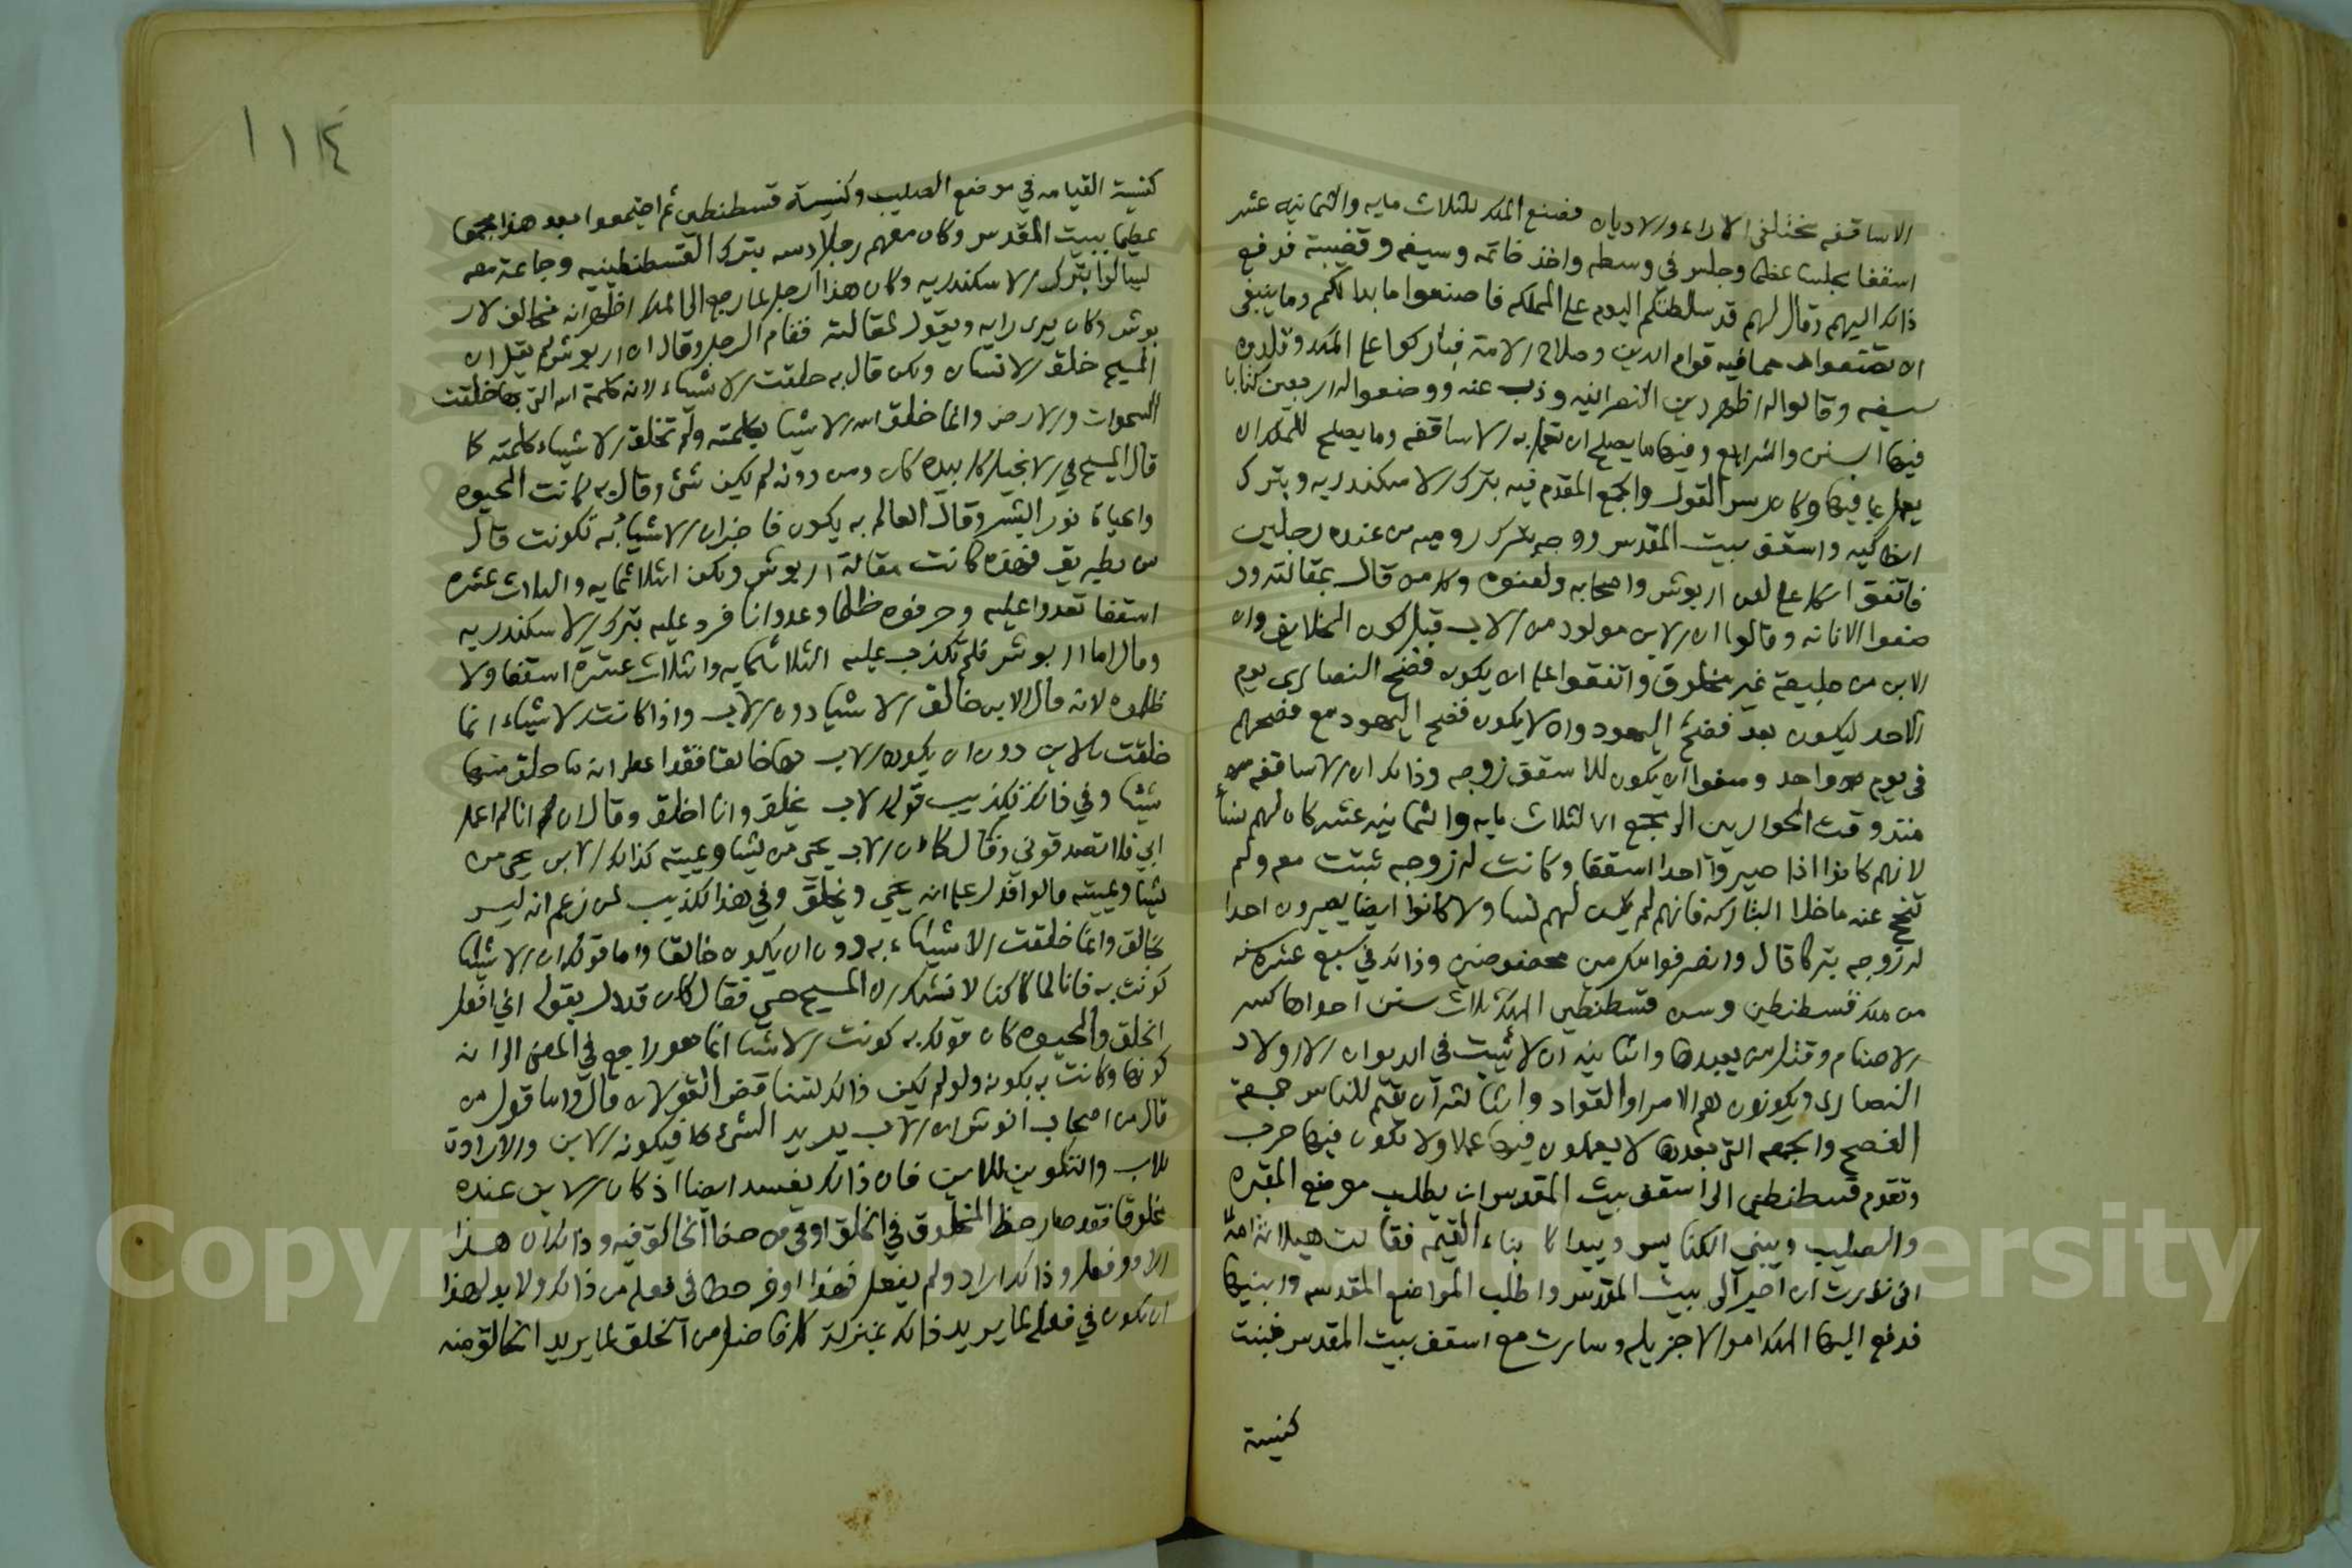 الاساقفه مختلفى الاراء والاديان فصنع الملك للثلاث مايه والثمانيه عشر
اسقفا مجلسا عظيما وجلس في وسطه واخذ خاتمه وسيفه وقضيبه فدفع
ذالك اليهم وقال لهم قد سلطتكم اليوم على المملكه فاصنعوا ما بدا لكم وما ينبغي
ان تصنعوا مما فيه قوام الدين وصلاح الامة فباركوا على الملك وقلدوه
سيفه وقالوا له اظهر دين النصرانيه وذب عنه ووضعوا له اربعين كتابا
فيها السنن والشرايع وفيها ما يصلح ان تعمل به الاساقفه وما يصلح للملك ان
يعمل بما فيها وكان القول والجمع المقدم فيه بترك الاسكندريه وبترك
انطاكيه واسقف بيت المقدس ووجه بترك روميه من عنده رجلين
فاتفق الكل على لعن اريوش واصحابه ولعنوه وكل من قال بمقالته و
ضعوا الامانه وقالوا ان الابن مولود من الاب قبل كون الخلايق وان
الابن من طبيعة غير مخلوق واتفقوا على ان يكون فصح النصارى يوم
الاحد ليكون بعد فصح اليهود وان لا يكون فصح اليهود مع فصحهم
في يوم واحد ومنعوا ان يكون للاسقف زوجه وذالك ان الاساقفه
منذ وقت الحواريين الى مجمع الثلاث مايه والثمانيه عشر كان لهم نسأ
لانهم كانوا اذا صيروا احدا اسقفا وكانت له زوجه ثبتت معه ولم
تنح عنه ما خلا البتاركه فانهم لم يكن لهم نسا ولا كانوا ايضا يصيرون احدا
له زوجه بتركا قال وانصرفوا مكرمين محفوضين وذالك في سبع عشره سنه
من ملك قسطنطين وسن قسطنطين الملك ثلاث سنن احداها كسر
الاصنام وقتل من يعبدها والثانيه ان لا يثبت في الديوان الا اولاد
النصارى ويكونون هم الامرا والقواد والثالثه ان يقيم للناس جمعة
الفصح والجمعه التي بعدها لا يعملون فيها عملا ولا تكون فيها حرب
وتقدم قسطنطين الى اسقف بيت المقدس ان يطلب موضع المقبره
والصليب ويبني الكنايس ويبدا بناء القيمه فقالت هيلانة امه
اني نذرت ان اصير الى بيت المقدس واطلب المواضع المقدسه وابنيها
فدفع اليها الملك اموالا جزيله وسارت مع اسقف بيت المقدس فبنت
كنيسة
١١٤
كنيسة القيامه في موضع الصليب وكنيسة قسطنطين ثم اجتمعوا بعد هذا مجمعا
عظيما ببيت المقدس وكان معهم رجل دسه بترك القسطنطينيه وجاعة معه
ليسالوا بترك الاسكندريه وكان هذا الرجل لما رجع الى الملك اظهر انه مخالف لار
يوش وكان يرى رايه ويقول بمقالته فقام الرجل وقال ان اريوش لم يقل ان
المسيح خلق الانسان ولكن قال به خلقت الاشياء لانه كلمة الله التي بها خلقت
السموات والارض وانما خلق الله الاشيا بكلمته ولم تخلق الاشياء كلمته كما
قال المسيح في الانجيل كل بيده كان ومن دونه لم يكن شئ وقال به كانت الحيوه
والحياة نور البشر وقال العالم به يكون فاخبر ان الاشيا به تكونت قال
بن بطريق فهذه كانت مقالة اريوش ولكن الثلاثمايه والثلاث عشره
اسقفا تعدوا عليه وحرفوه ظلما وعدوانا فرد عليه بترك الاسكندريه
وقال اما اريوش فلم تكذب عليه الثلاثمايه والثلاث عشره اسقفا ولا
ظلموه لانه قال الابن خالق الاشيا دون الاب واذا كانت الاشياء انما
خلقت بالابن دون ان يكون الاب لها خالقا فقد اعطى انه ما خلق منها
شيئا وفي ذالك تكذيب قوله الاب يخلق وانا اخلق وقال ان انا لم اعمل
ابي فلا تصدقوني وقال كما ان الاب يحيي من يشا ويميته كذالك الابن يحي من
يشا ويميته قالوا فدل على انه يحيي ويخلق وفي هذا تكذيب لمن زعم انه ليس
بخالق وانما خلقت الاشياء به دون ان يكون خالقا واما قولك ان الاشيا
كونت به فانا لما كنا لا نشك ان المسيح حي فقال كان قد دل بقوله اني افعل
الخلق والحيوه كان قولك به كونت الاشيا انما هو راجع في المعنى الى انه
كونها وكانت به مكونه ولو لم يكن ذالك لتناقض القولان قال واما قول من
قال من اصحاب اريوش ان الاب يريد الشئ فيكونه الابن والارادة
للاب والتكوين للابن فان ذالك يفسد ايضا اذ كان الابن عنده
مخلوقا فقد صار حظ المخلوق في الخلق اوفى من حظ الخالق فيه وذالك ان هذا
اراد وفعل وذالك اراد ولم يفعل فهذا اوفر حظا في فعله من ذالك ولا بد لهذا
ان يكون في فعله لما يريد ذالك بمنزلة كل فاعل من الخلق لما يريد الخالق منه
Copyright © King Saud University